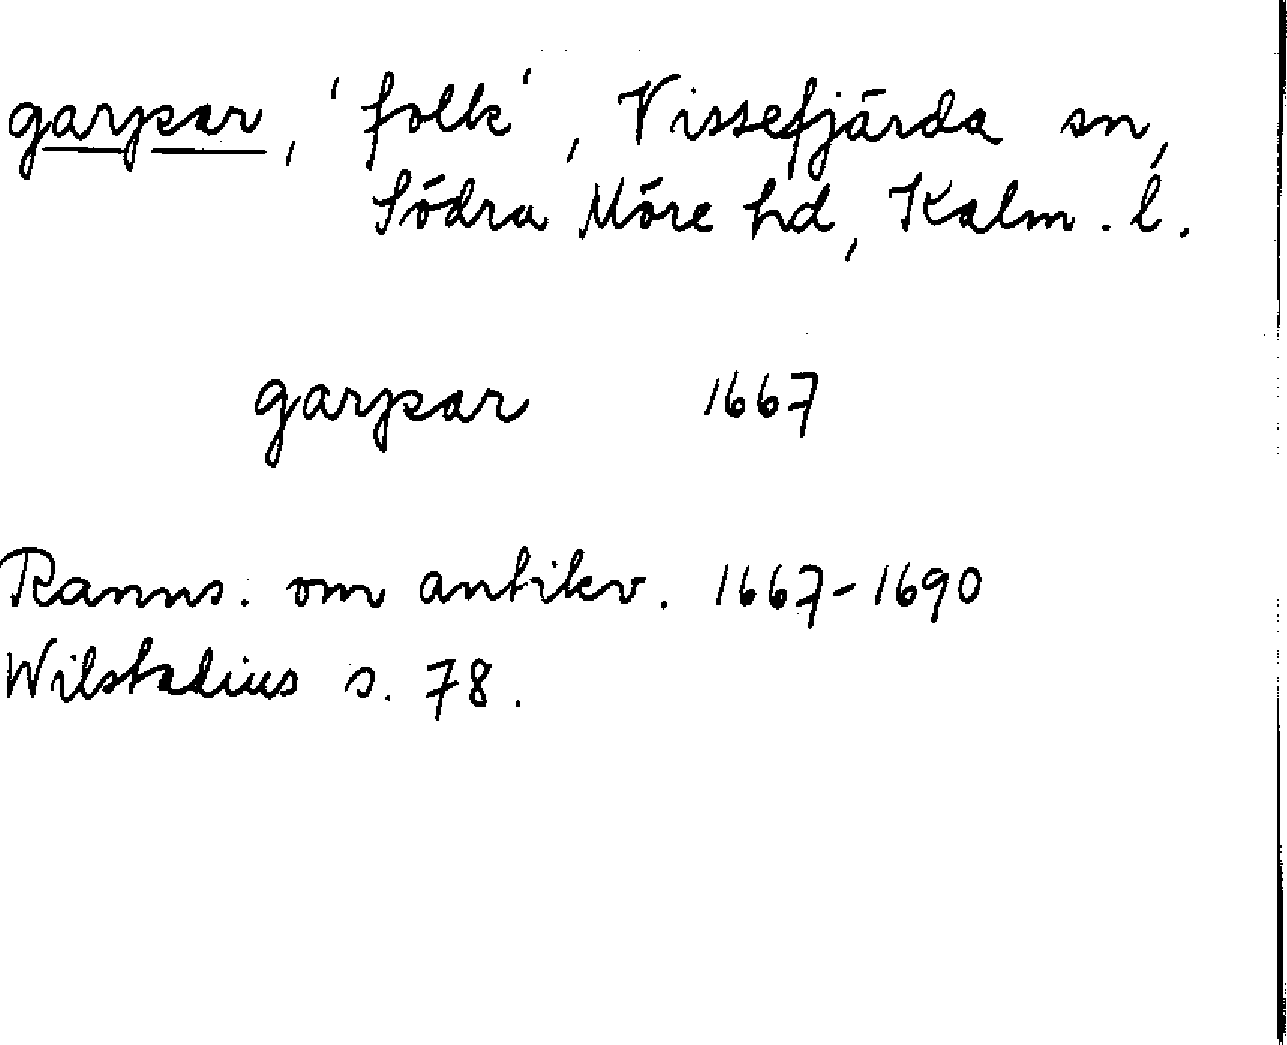 garpar, 'folk', Vissefjärda sn,
Södra Möre hd, Kalm. l.
garpar 1667
Ranns. om antikv. 1667-1690
Wilstadius s. 78.